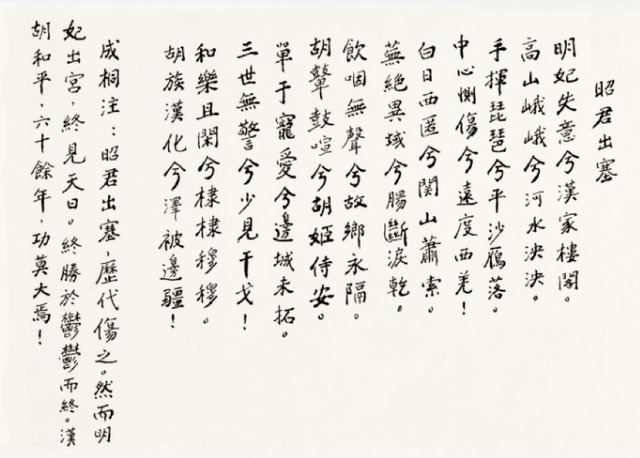 昭君出塞
明妃失意兮漢家樓閣。
高山峨峨兮河水泱泱。
手揮琵琶兮平沙雁落。
中心惻傷兮遠度西羌！
白日西匿兮関山蕭索。
蕪絶異域兮腸斷淚乾。
飲咽無聲兮故鄉永隔。
胡鼙鼓喧兮胡姬侍安。
單于寵愛兮邊城未拓。
三世無警兮少見干戈！
和樂且閑兮棣棣穆穆。
胡族漢化兮澤被邊疆！
成桐注：昭君出塞，歷代傷之。然而明
妃出宮，終見天日。終勝於鬱鬱而終。漢
胡和平、六十餘年，功莫大焉！